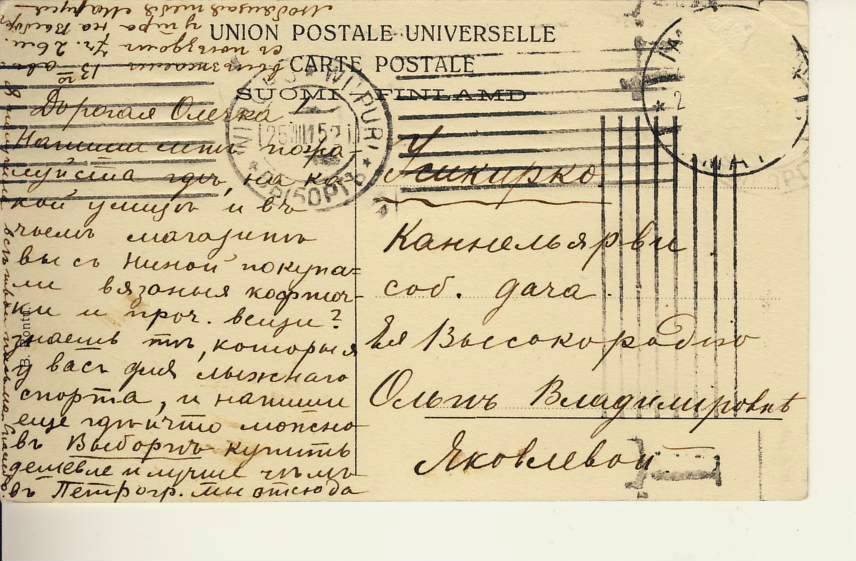 UNION POSTALE UNIVERSELLE
CARTE POSTALE
SUOMI FINLAND
WIPURI
Дорогая Олечка!
Напиши мнѣ пожа-
луйста гдѣ, на ка-
кой улицѣ и въ
чьемъ магазинѣ
вы съ Ниной покупа-
ли вязаныя кофточ-
ки и проч. вещи?
знаешь тѣ, которыя
у васъ для лыжнаго
спорта, и напиши
еще гдѣ и что можно
въ Выборгѣ купить
дешевле и лучше чѣмъ
въ Петрогр. мы отсюда
выѣзжаемъ 13го
съ поѣздомъ
утра на Выборг
Любящая тебя Маруся
Усикирко
Каннельярви
соб. дача
Ея Высокородію
Ольгѣ Владиміровнѣ
Яковлевой